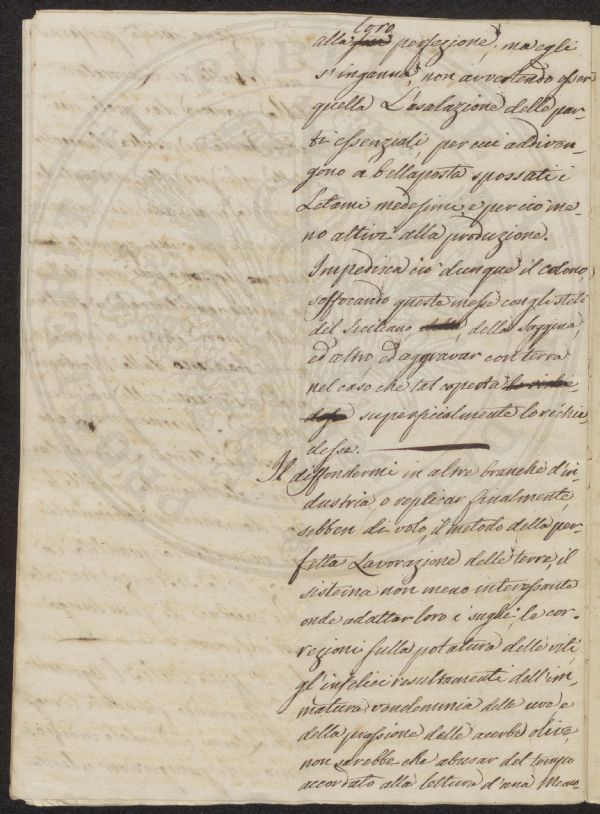 loro
alla sua perfezione; ma egli
s'inganna, non avvertendo esser
quella L'esalazione delle par-
ti essenziali, per cui addiven-
gono a bella posta spossati i
Letami medesimi, e perciò me-
no attivi alla produzione.
Impedisca ciò dunque il colono,
soffocando questa messe con gli steli
del siciliano della Saggina,
ed altro, ed aggravar con terra
nel caso che tal coperta
superficialmente lo richie,
desse.
Il diffondermi in altre branche d'in-
dustria, o replicar finalmente,
sebben di volo, il metodo della per-
fetta Lavorazione delle terre, il
sistema non meno interessante
onde adattar loro i sughi, le cor-
rezioni sulla potatura delle viti,
gl'infelici resultamenti dell'im-
matura vendemmia delle uve, e
della pressione delle acerbe olive,
non sarebbe che abusar del tempo
accordato alla lettura d'una Memo-